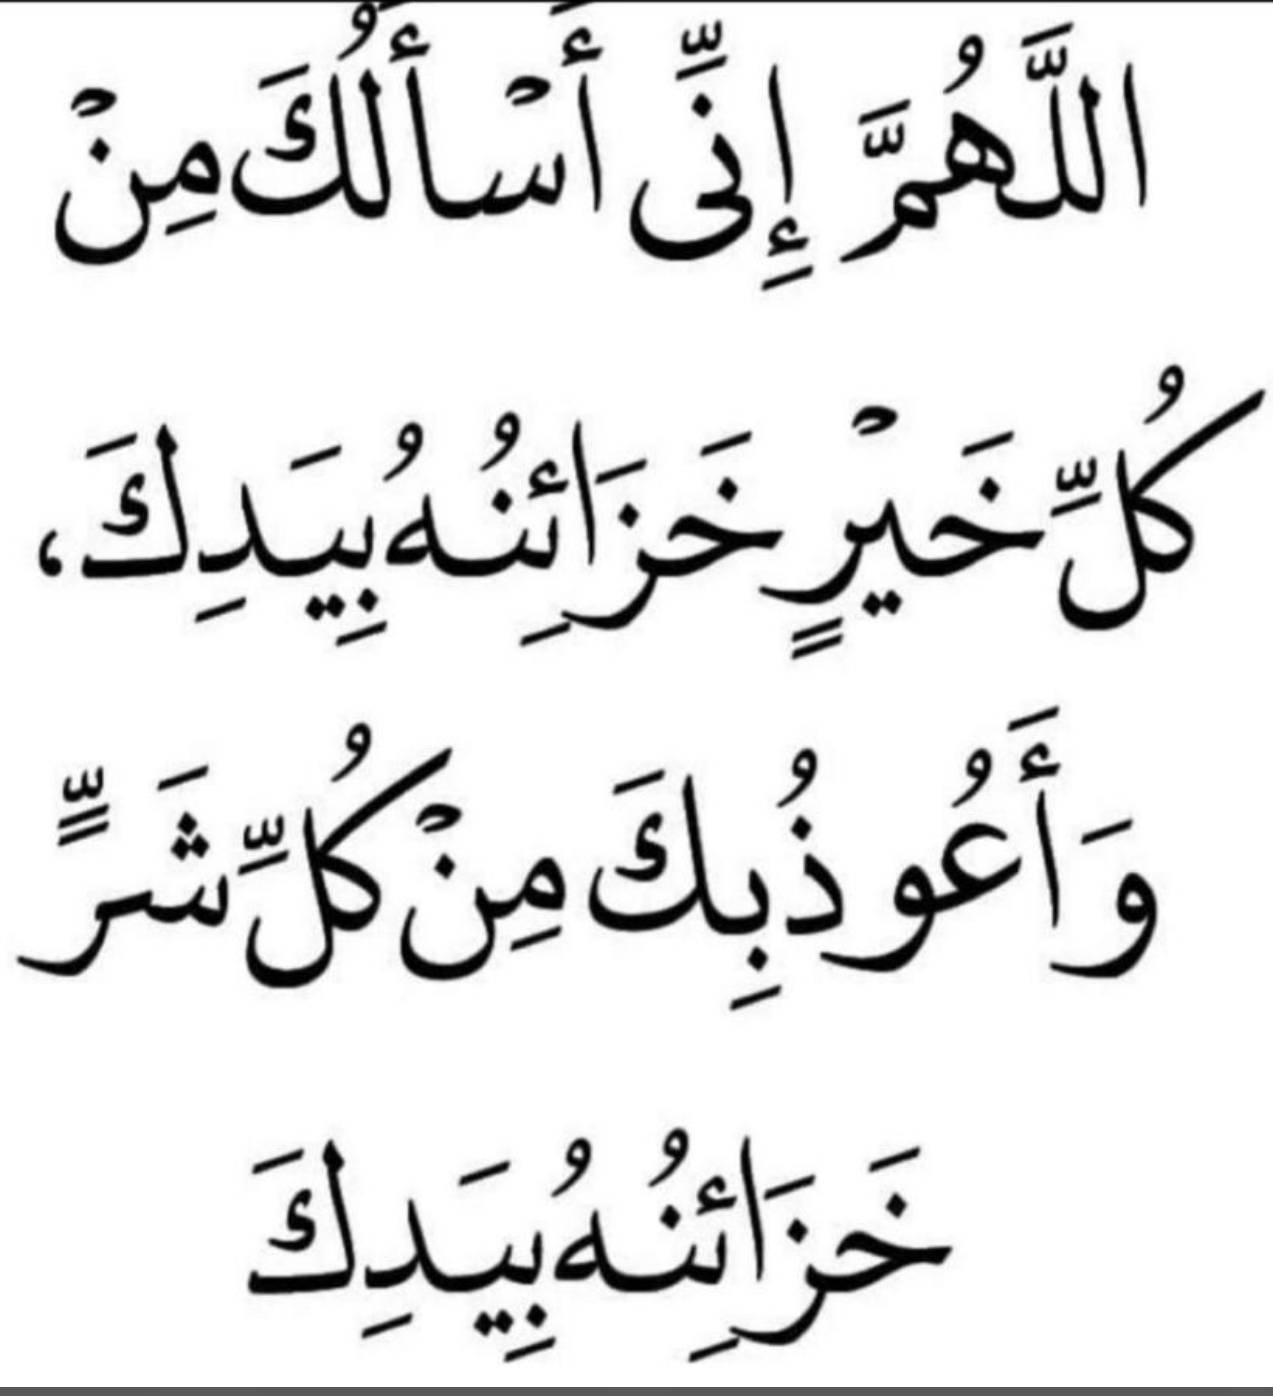 اللَّهُمَّ إِنِّى أَسْأَلُكَ مِنْ
كُلِّ خَيْرٍ خَزَائِنُهُ بِيَدِكَ،
وَأَعُوذُ بِكَ مِنْ كُلِّ شَرٍّ
خَزَائِنُهُ بِيَدِكَ